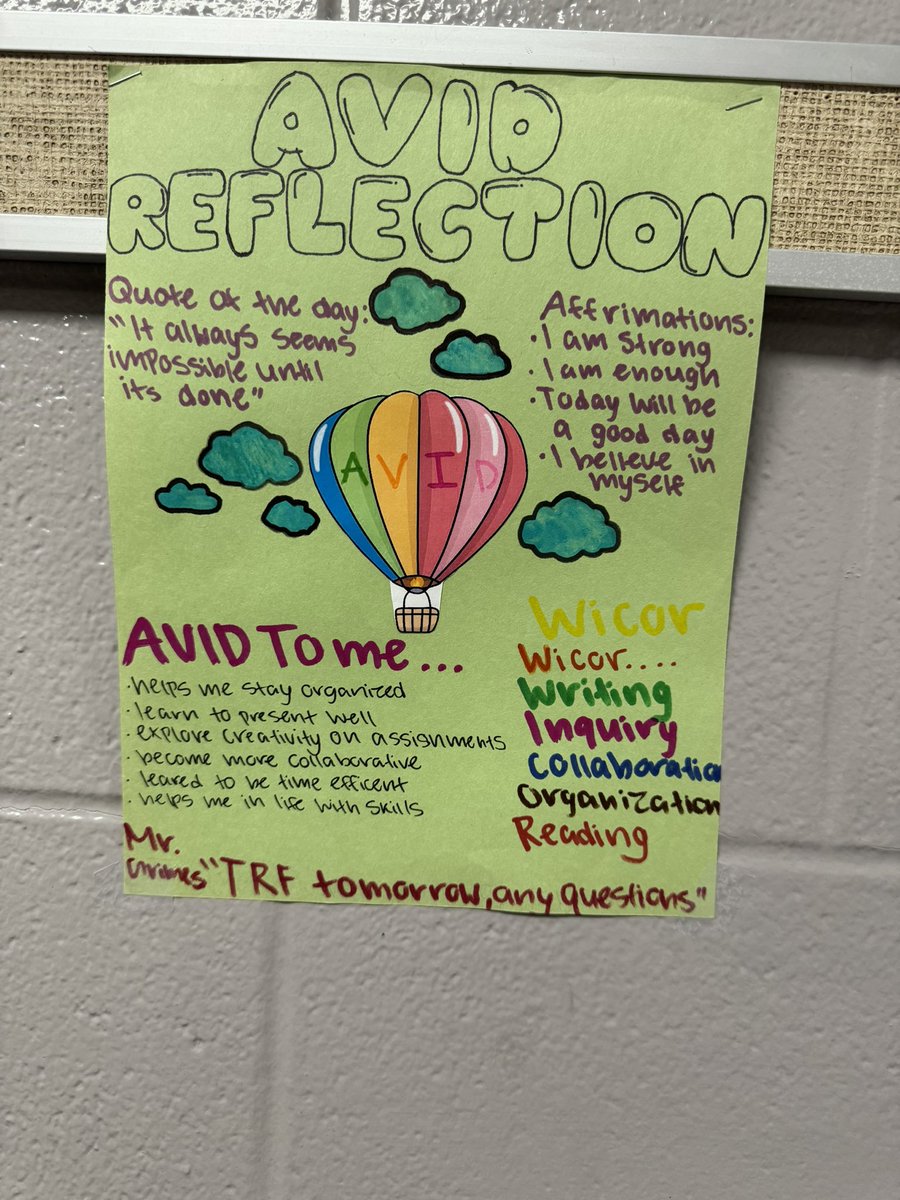 AVID
REFLECTION
Quote of the day:
"It always seems
impossible until
its done"
Affrimations:
· I am strong
· I am enough
· Today will be
a good day
· I believe in
myself
AVID
AVID To me...
· helps me stay organized
· learn to present well
· explore creativity on assignments
· become more collaborative
· leared to be time efficent
· helps me in life with skills
Wicor
Wicor....
Writing
Inquiry
Collaboration
Organization
Reading
Mr.
"TRF tomorrow, any questions"